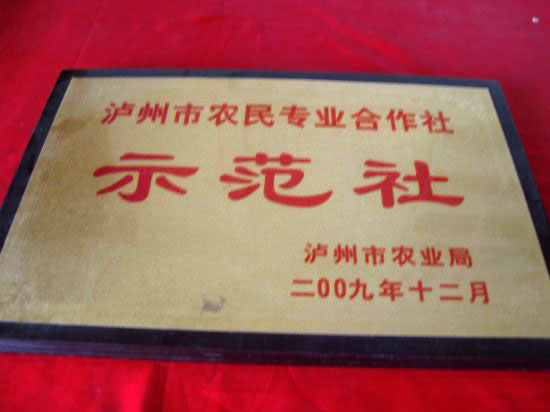 泸州市农民专业合作社
示范社
泸州市农业局
二00九年十二月